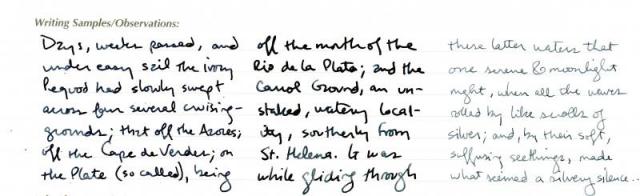 Writing Samples/Observations:
Days, weeks passed, and
under easy sail the ivory
Pequod had slowly swept
across four several cruising-
grounds; that off the Azores;
off the Cape de Verdes; on
the Plate (so called), being
off the mouth of the
Rio de la Plata; and the
Carrol Ground, an un-
staked, watery local-
ity, southerly from
St. Helena. It was
while gliding through
these latter waters that
one serene & moonlight
night, when all the waves
rolled by like scrolls of
silver; and, by their soft,
suffusing seethings, made
what seemed a silvery silence..